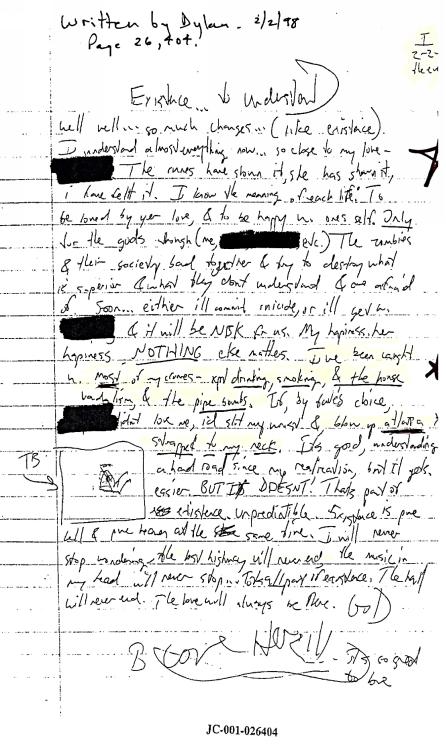 Written by Dylan. 2/2/98
Page 26, tot.
I
2-2-
Existence... to understand
well well... so much changes... (like existence).
I understand almost everything now... so close to my love-
The runes have shown it, she has shown it,
i have felt it. I know the meaning of each life: To
be loved by yer love, & to be happy w. ones self. Only
for the gods though (me, etc.) The zombies
& their society band together & try to destroy what
is superior & what they dont understand & are afraid
of. Soon... either ill commit suicide, or ill get w.
& it will be NBK for us. My happiness. her
happiness. NOTHING else matters. I've been caught
w. most of my crimes - xpt drinking, smoking, & the house
vandalism, & the pipe bombs. If, by fate's choice,
didnt love me, id slit my wrist & blow up atlanta
strapped to my neck. It's good, understanding
a hard road since my realization, but it gets
easier. BUT IT DOESNT! Thats part of
existence. unpredictible. Existence is pure
hell & pure heaven at the same time. I will never
stop wondering. the lost highway will never end. the music in
my head will never stop... its all part of existence. The hell
will never end. The love will always be there. (Go!)
TB
it's so good
to love
JC-001-026404